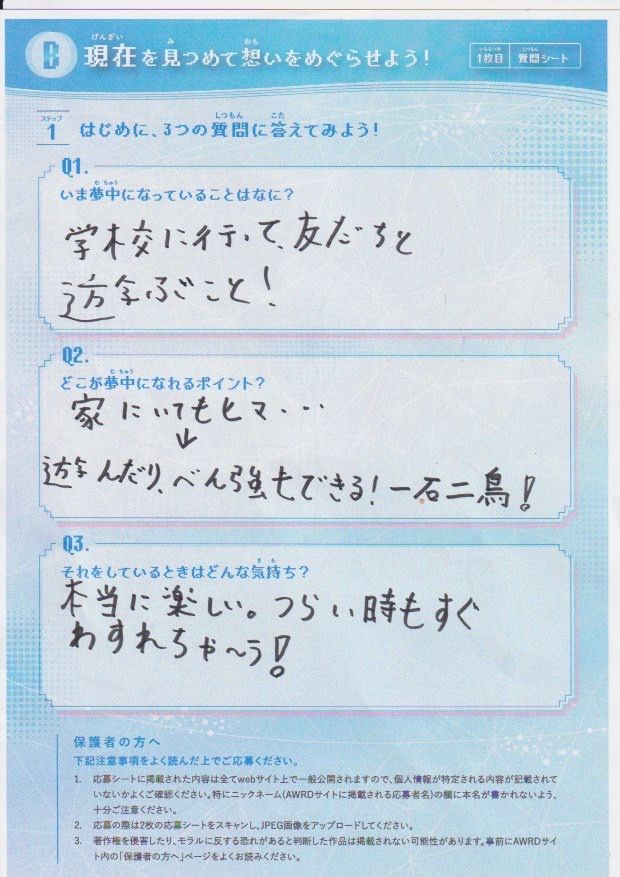 B 現在を見つめて想いをめぐらせよう!
1枚目 質問シート
ステップ
1 はじめに、3つの質問に答えてみよう!
Q1.
いま夢中になっていることはなに?
学校に行って、友だちと
遊ぶこと!
Q2.
どこが夢中になれるポイント?
家にいてもヒマ・・・
↓
遊んだり、べん強もできる!一石二鳥!
Q3.
それをしているときはどんな気持ち?
本当に楽しい。つらい時もすぐ
わすれちゃ〜う!
保護者の方へ
下記注意事項をよく読んだ上でご応募ください。
1. 応募シートに掲載された内容は全てwebサイト上で一般公開されますので、個人情報が特定される内容が記載されて
いないかよくご確認ください。特にニックネーム(AWRDサイトに掲載される応募者名)の欄に本名が書かれないよう、
十分ご注意ください。
2. 応募の際は2枚の応募シートをスキャンし、JPEG画像をアップロードしてください。
3. 著作権を侵害したり、モラルに反する恐れがあると判断した作品は掲載されない可能性があります。事前にAWRDサイ
ト内の「保護者の方へ」ページをよくお読みください。